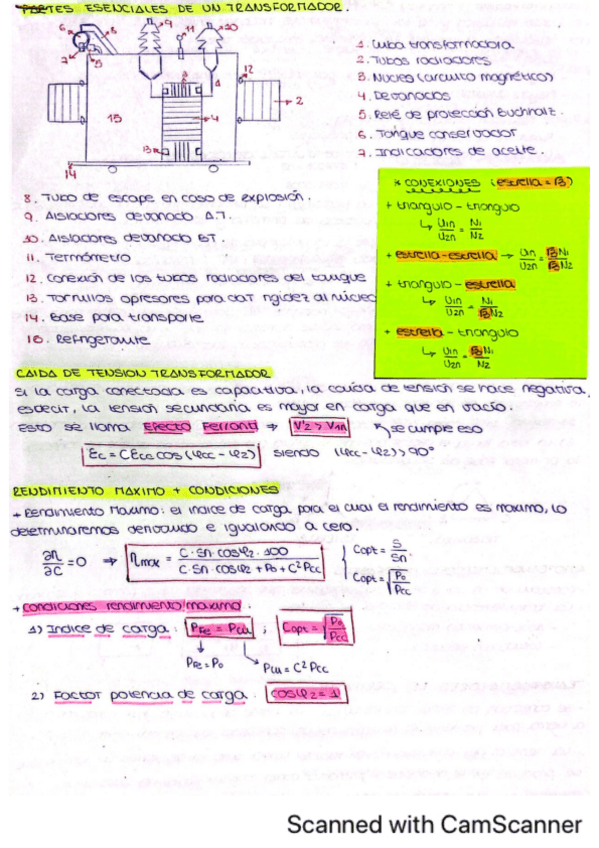 PARTES ESENCIALES DE UN TRANSFORMADOR.
1. Cuba transformadora
2. Tubos radiadores
3. Núcleo (circuito magnético)
4. Devanados
5. Relé de protección Buchholz.
6. Tanque conservador
7. Indicadores de aceite.
8. Tubo de escape en caso de explosión.
9. Aisladores devanado A.T.
10. Aisladores devanado B.T.
11. Termómetro
12. Conexión de los tubos radiadores del tanque
13. Tornillos opresores para dar rigidez al núcleo
14. Base para transporte
10. Refrigerante
* CONEXIONES (estrella = √3)
+ triangulo - triangulo
↳ U1n/U2n = N1/N2
+ estrella-estrella → U1n/U2n = √3N1/√3N2
+ triangulo - estrella
↳ U1n/U2n = N1/√3N2
+ estrella - triangulo
↳ U1n/U2n = √3N1/N2
CAIDA DE TENSION TRANSFORMADOR
Si la carga conectada es capacitiva, la caída de tensión se hace negativa,
es decir, la tensión secundaria es mayor en carga que en vacío.
Esto se llama Efecto Ferranti ⇒ V'2 > V1n se cumple eso
Ec = CEcc cos(φcc - φ2) siendo (φcc - φ2) > 90°
RENDIMIENTO MAXIMO + CONDICIONES
+ Rendimiento Maximo: el indice de carga para el cual el rendimiento es maximo, lo
determinaremos derivando e igualando a cero.
∂η/∂C = 0 ⇒ ηmax = C·Sn·cosφ2·100 / C·Sn·cosφ2 + Po + C²Pcc
Copt = S/Sn
Copt = √Po/Pcc
+ Condiciones rendimiento maximo:
1) Indice de carga: PFe = PCu ; Copt = √Po/Pcc
PFe = Po PCu = C²Pcc
2) Factor potencia de carga. cosφ2 = 1
2
3
4
5
6
7
8
9
10
11
12
13
14
15
Scanned with CamScanner